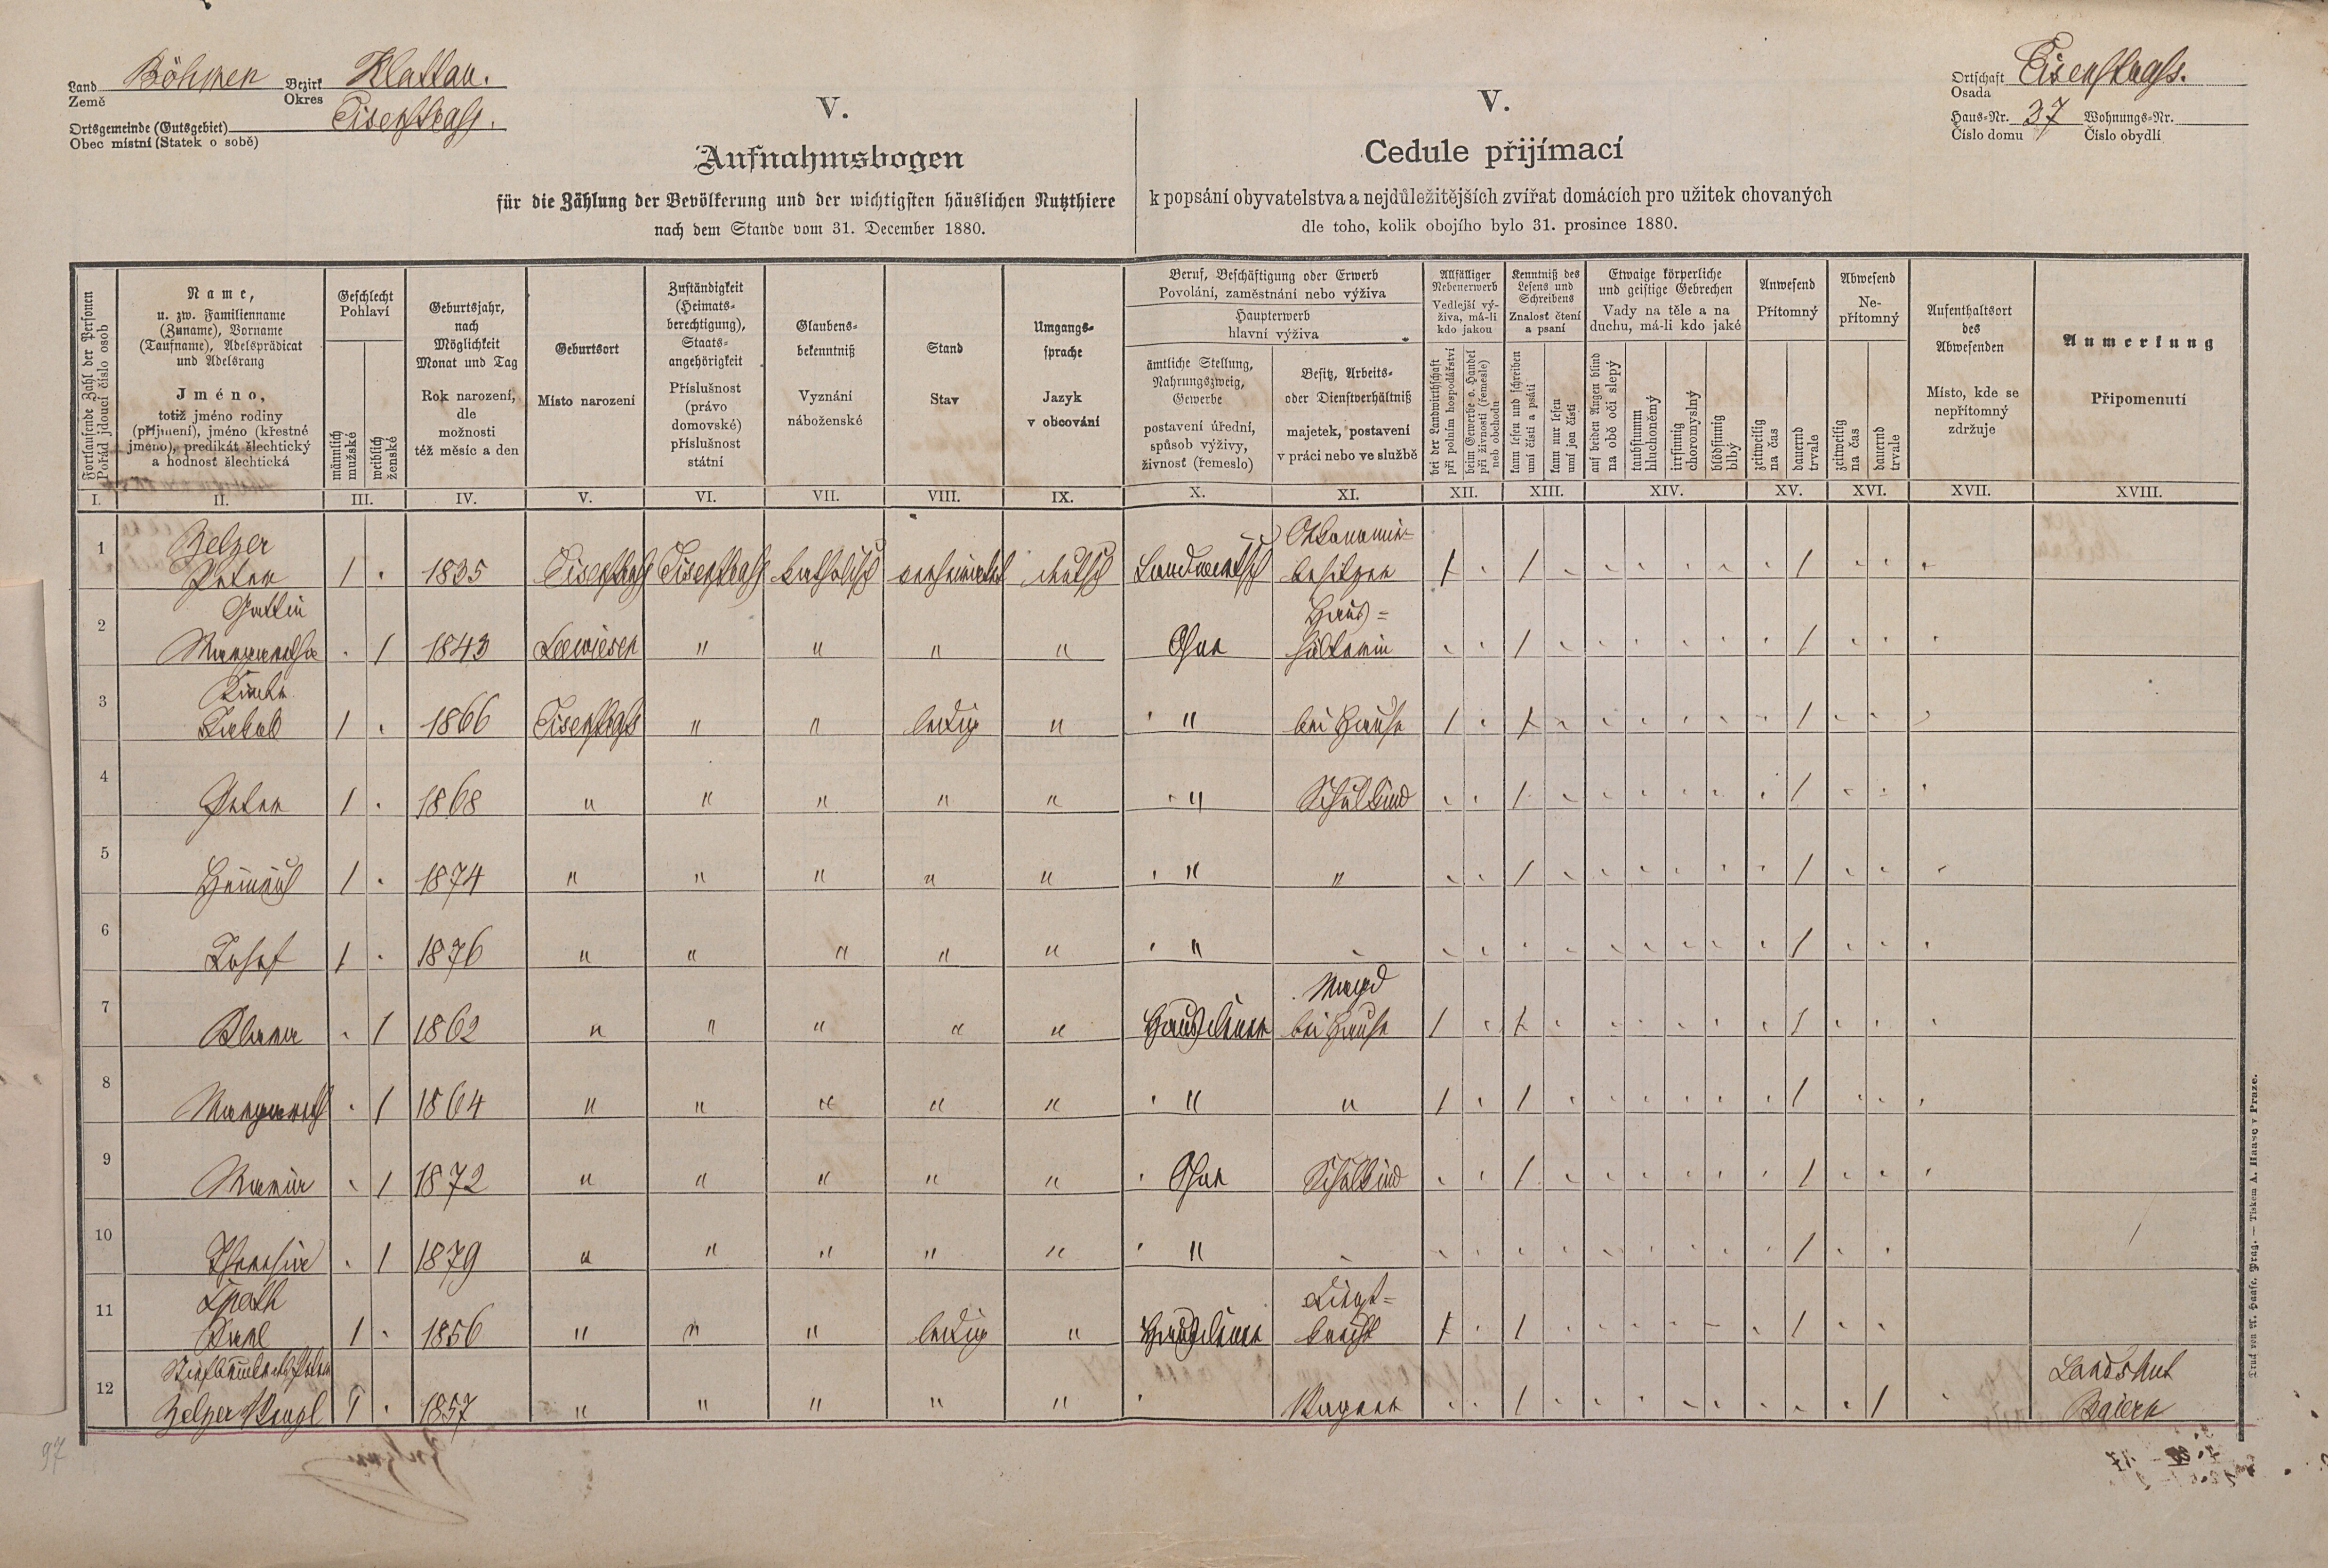 Land Böhmen Bezirk Klattau.
Země Okres Eisenstrass.
Ortsgemeinde (Gutsgebiet)
Obec místní (Statek o sobě)
V.
Aufnahmsbogen
für die Zählung der Bevölkerung und der wichtigsten häuslichen Nutzthiere
nach dem Stande vom 31. December 1880.
V.
Cedule přijímací
k popsání obyvatelstva a nejdůležitějších zvířat domácích pro užitek chovaných
dle toho, kolik obojího bylo 31. prosince 1880.
Ortschaft Eisenstrass.
Osada
Haus-Nr. 37 Wohnungs-Nr.
Číslo domu Číslo obydlí
Fortlaufende Zahl der Personen
Pořád jdoucí číslo osob
Name,
u. zw. Familienname
(Zuname), Vorname
(Taufname), Adelsprädicat
und Adelsrang
Jméno,
totiž jméno rodiny
(příjmení), jméno (křestné
jméno), predikát šlechtický
a hodnost šlechtická
Geschlecht
Pohlaví
männlich
mužské
weiblich
ženské
Geburtsjahr,
nach
Möglichkeit
Monat und Tag
Rok narození,
dle
možnosti
též měsíc a den
Geburtsort
Místo narození
Zuständigkeit
(Heimats-
berechtigung),
Staats-
angehörigkeit
Příslušnost
(právo
domovské)
příslušnost
státní
Glaubens-
bekenntniß
Vyznání
náboženské
Stand
Stav
Umgangs-
sprache
Jazyk
v obcování
Beruf, Beschäftigung oder Erwerb
Povolání, zaměstnání nebo výživa
Haupterwerb
hlavní výživa
ämtliche Stellung,
Nahrungszweig,
Gewerbe
postavení úřední,
spůsob výživy,
živnost (řemeslo)
Besitz, Arbeits-
oder Dienstverhältniß
majetek, postavení
v práci nebo ve službě
Allfälliger
Nebenerwerb
Vedlejší vý-
živa, má-li
kdo jakou
bei der Landwirthschaft
při polním hospodářství
beim Gewerbe o. Handel
při živnosti (řemesle)
neb obchodu
Kenntniß des
Lesens und
Schreibens
Znalost čtení
a psaní
kann lesen und schreiben
umí čísti a psáti
kann nur lesen
umí jen čísti
Etwaige körperliche
und geistige Gebrechen
Vady na těle a na
duchu, má-li kdo jaké
auf beiden Augen blind
na obě oči slepý
taubstumm
hluchoněmý
irrsinnig
choromyslný
blödsinnig
blbý
Anwesend
Přítomný
zeitweilig
na čas
dauernd
trvale
Abwesend
Ne-
přítomný
zeitweilig
na čas
dauernd
trvale
Aufenthaltsort
des
Abwesenden
Místo, kde se
nepřítomný
zdržuje
Anmerkung
Připomenutí
I. II. III. IV. V. VI. VII. VIII. IX. X. XI. XII. XIII. XIV. XV. XVI. XVII. XVIII.
Zelzer Oekonomie=
1 Peter 1 1835 Eisenstrass Eisenstrass katholisch verheiratet deutsch Landwirtsch besitzer 1 1 1
Gattin Haus=
2 Margaretha 1 1843 Seewiesen " " " " Ohne hälterin 1 1
Kinder
3 Jakob 1 1866 Eisenstrass " " ledig " " bei Hause 1 1 1
4 Peter 1 1868 " " " " " " Schulkind 1 1
5 Heinrich 1 1874 " " " " " " " 1 1
6 Josef 1 1876 " " " " " " 1
Magd
7 1 1862 " " " " " bei Hause 1 1 1
8 Margareth 1 1864 " " " " " " " 1 1 1
9 Maria 1 1872 " " " " " Ohne Schulkind 1 1
10 Theresia 1 1879 " " " " " " 1
Dienst=
11 Karl 1 1856 " " " ledig " knecht 1 1 1
12 Zelzer 1 1857 " " " " " 1 1 Landshut
Baiern
97
Druck von A. Haase, Prag. — Tiskem A. Haase v Praze.